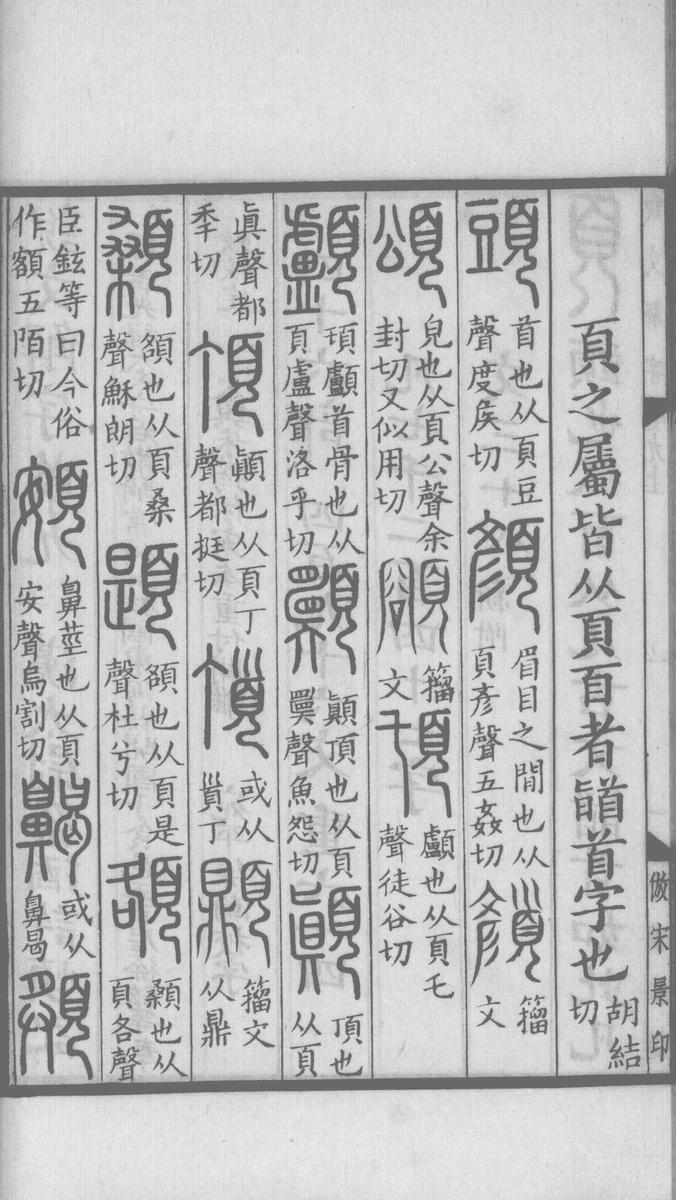 頁之屬皆从頁百者䭫首字也胡結切
頭首也从頁豆聲度矦切顏眉目之閒也从頁彥聲五姦切𩕝籀文
頌皃也从頁公聲余封切又似用切𩔜籀文𩑒顱也从頁乇聲徒谷切
顱𩑒顱首骨也从頁盧聲洛乎切顚頂也从頁㒹聲魚怨切顚頂也从頁
眞聲都秊切頂顚也从頁丁聲都挺切𩠑或从𩠐丁𩕢籀文从鼎
顙頟也从頁桑聲穌朗切題頟也从頁是聲杜兮切頟顙也从頁各聲
臣鉉等曰今俗作額五陌切頞鼻莖也从頁安聲烏割切齃或从鼻曷頯
倣宋景印